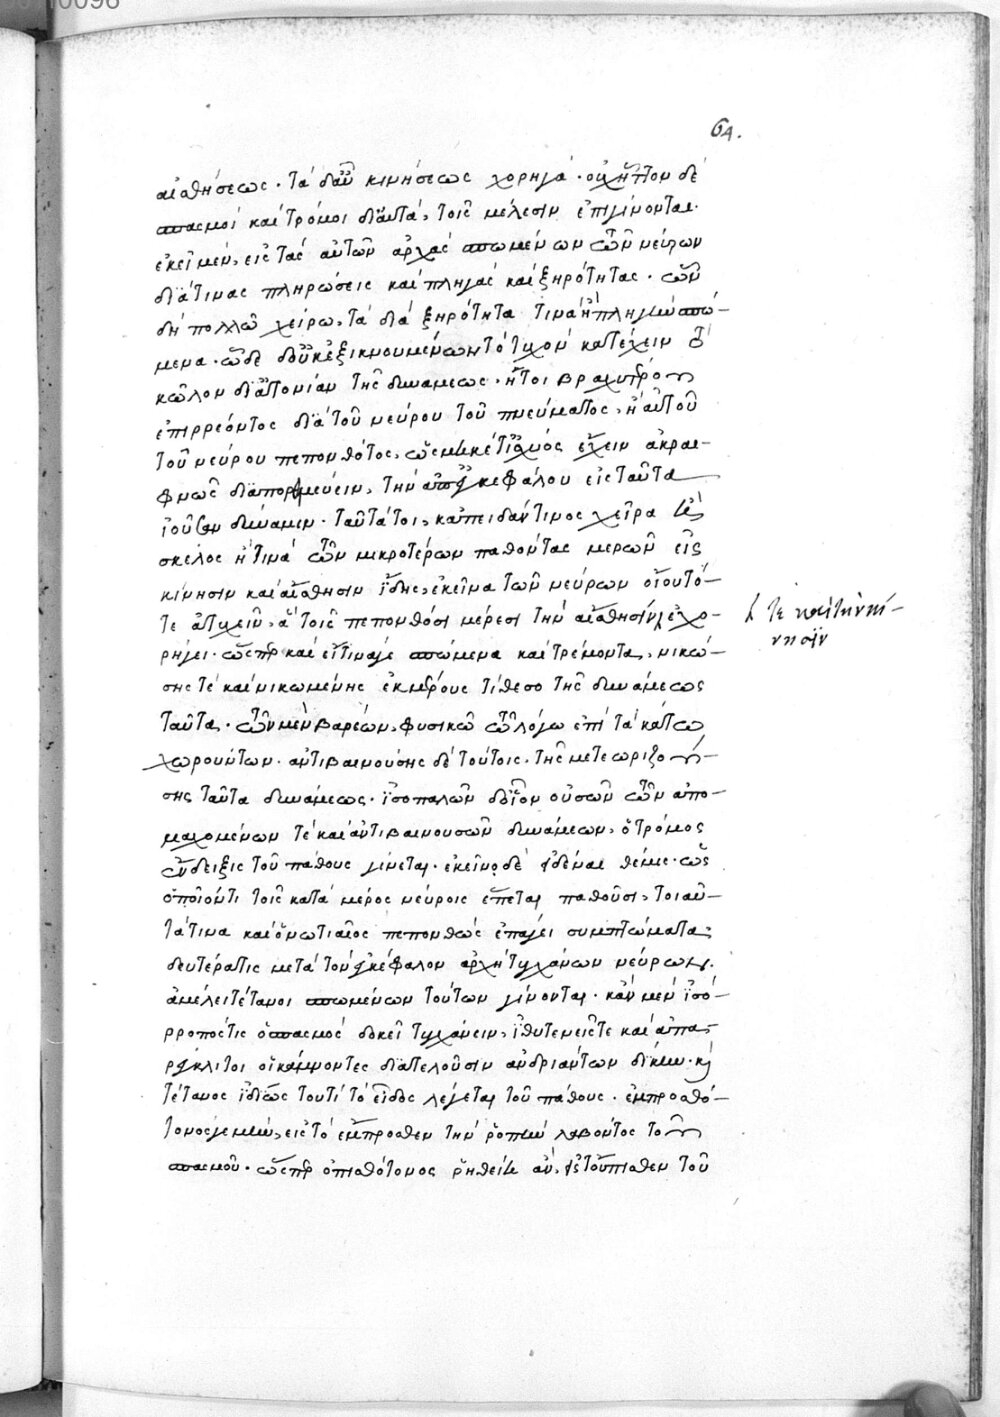 64.
αἰσθήσεως · τὰ δ' αὖ κινήσεως χορηγά · οὐχ ἧττον δὲ
σπασμοὶ καὶ τρόμοι δι' αὐτὰ, τοῖς μέλεσιν ἐπιγίνονται·
ἐκεῖ μὲν, εἰς τὰς αὐτῶν ἀρχὰς σπωμένων τῶν νεύρων
διά τινας πληρώσεις καὶ πληγὰς καὶ ξηρότητας · ὧν
δὴ πολλῷ χείρω, τὰ διὰ ξηρότητά τινα ἢ πληγὴν σπώ-
μενα · ὧδε δ' οὐκ ἐξικνουμένων τὸ τυχὸν κατέχειν τὸ
κῶλον δι' ἀτονίαν τῆς δυνάμεως · ἤτοι βραχυτέρου
ἐπιρρέοντος διὰ τοῦ νεύρου τοῦ πνεύματος, ἢ αὐτοῦ
τοῦ νεύρου πεπονθότος, ὡς μηκέτι ἰσχὺς ἔχειν ἀκραι-
φνῶς διαπορθμεύειν, τὴν ἀπ' ἐγκεφάλου εἰς ταῦτα
ἰοῦσαν δύναμιν · ταῦτά τοι, κἀπειδάν τινος χεῖρα ἢ
σκέλος ἤ τινα τῶν μικροτέρων παθόντας μερῶν εἰς
κίνησιν καὶ αἴσθησιν ἴδῃς, ἐκεῖνα τῶν νεύρων οἴου τό-
τε ἀτυχεῖν, ἃ τοῖς πεπονθόσι μέρεσι τὴν αἴσθησιν ἐχο-
ρήγει · ὥσπερ καὶ εἴ τινά γε σπώμενα καὶ τρέμοντα, νικώ-
σης τε καὶ νικωμένης ἐκ μέρους τίθεσο τῆς δυνάμεως
ταῦτα · τῶν μὲν βαρέων, φυσικῷ τῷ λόγῳ ἐπὶ τὰ κάτω
χωρούντων · ἀντιβαινούσης δὲ τούτοις · τῆς μετεωριζού-
σης ταῦτα δυνάμεως · ἰσοπαλῶν δ' οἷον οὐσῶν τῶν ἀπο-
μαχομένων τε καὶ ἀντιβαινουσῶν δυνάμεων, ὁ τρόμος
ἔνδειξις τοῦ πάθους γίνεται · ἐκεῖνο δὲ εἰδέναι θέμις · ὡς
ὁποῖόν τι τοῖς κατὰ μέρος νεύροις ἕπεται παθοῦσι, τοιαῦ-
τά τινα καὶ ὁ νωτιαῖος πεπονθὼς ἐπάγει συμπτώματα·
δευτέρα τις μετὰ τὸν ἐγκέφαλον ἀρχὴ τυγχάνων νεύρων.
ἀμέλει τέτανοι σπωμένων τούτων γίνονται · κἂν μὲν ἰσό-
ρροπός τις ὁ σπασμὸς δοκεῖ τυγχάνειν, ἰθυτενεῖς τε καὶ ἀπα-
ρέγκλιτοι οἱ κάμνοντες διατελοῦσιν ἀνδριάντων δίκην · καὶ
τέτανος ἰδίως τουτὶ τὸ εἶδος λέγεται τοῦ πάθους · ἐμπροσθό-
τονος γε μὴν, εἰς τὸ ἔμπροσθεν τὴν ῥοπὴν λαβόντος τοῦ
σπασμοῦ · ὥσπερ ὀπισθότονος ῥηθείη ἂν, εἰς τοὔπισθεν τοῦ
τε καὶ τὴν κί-
νησιν